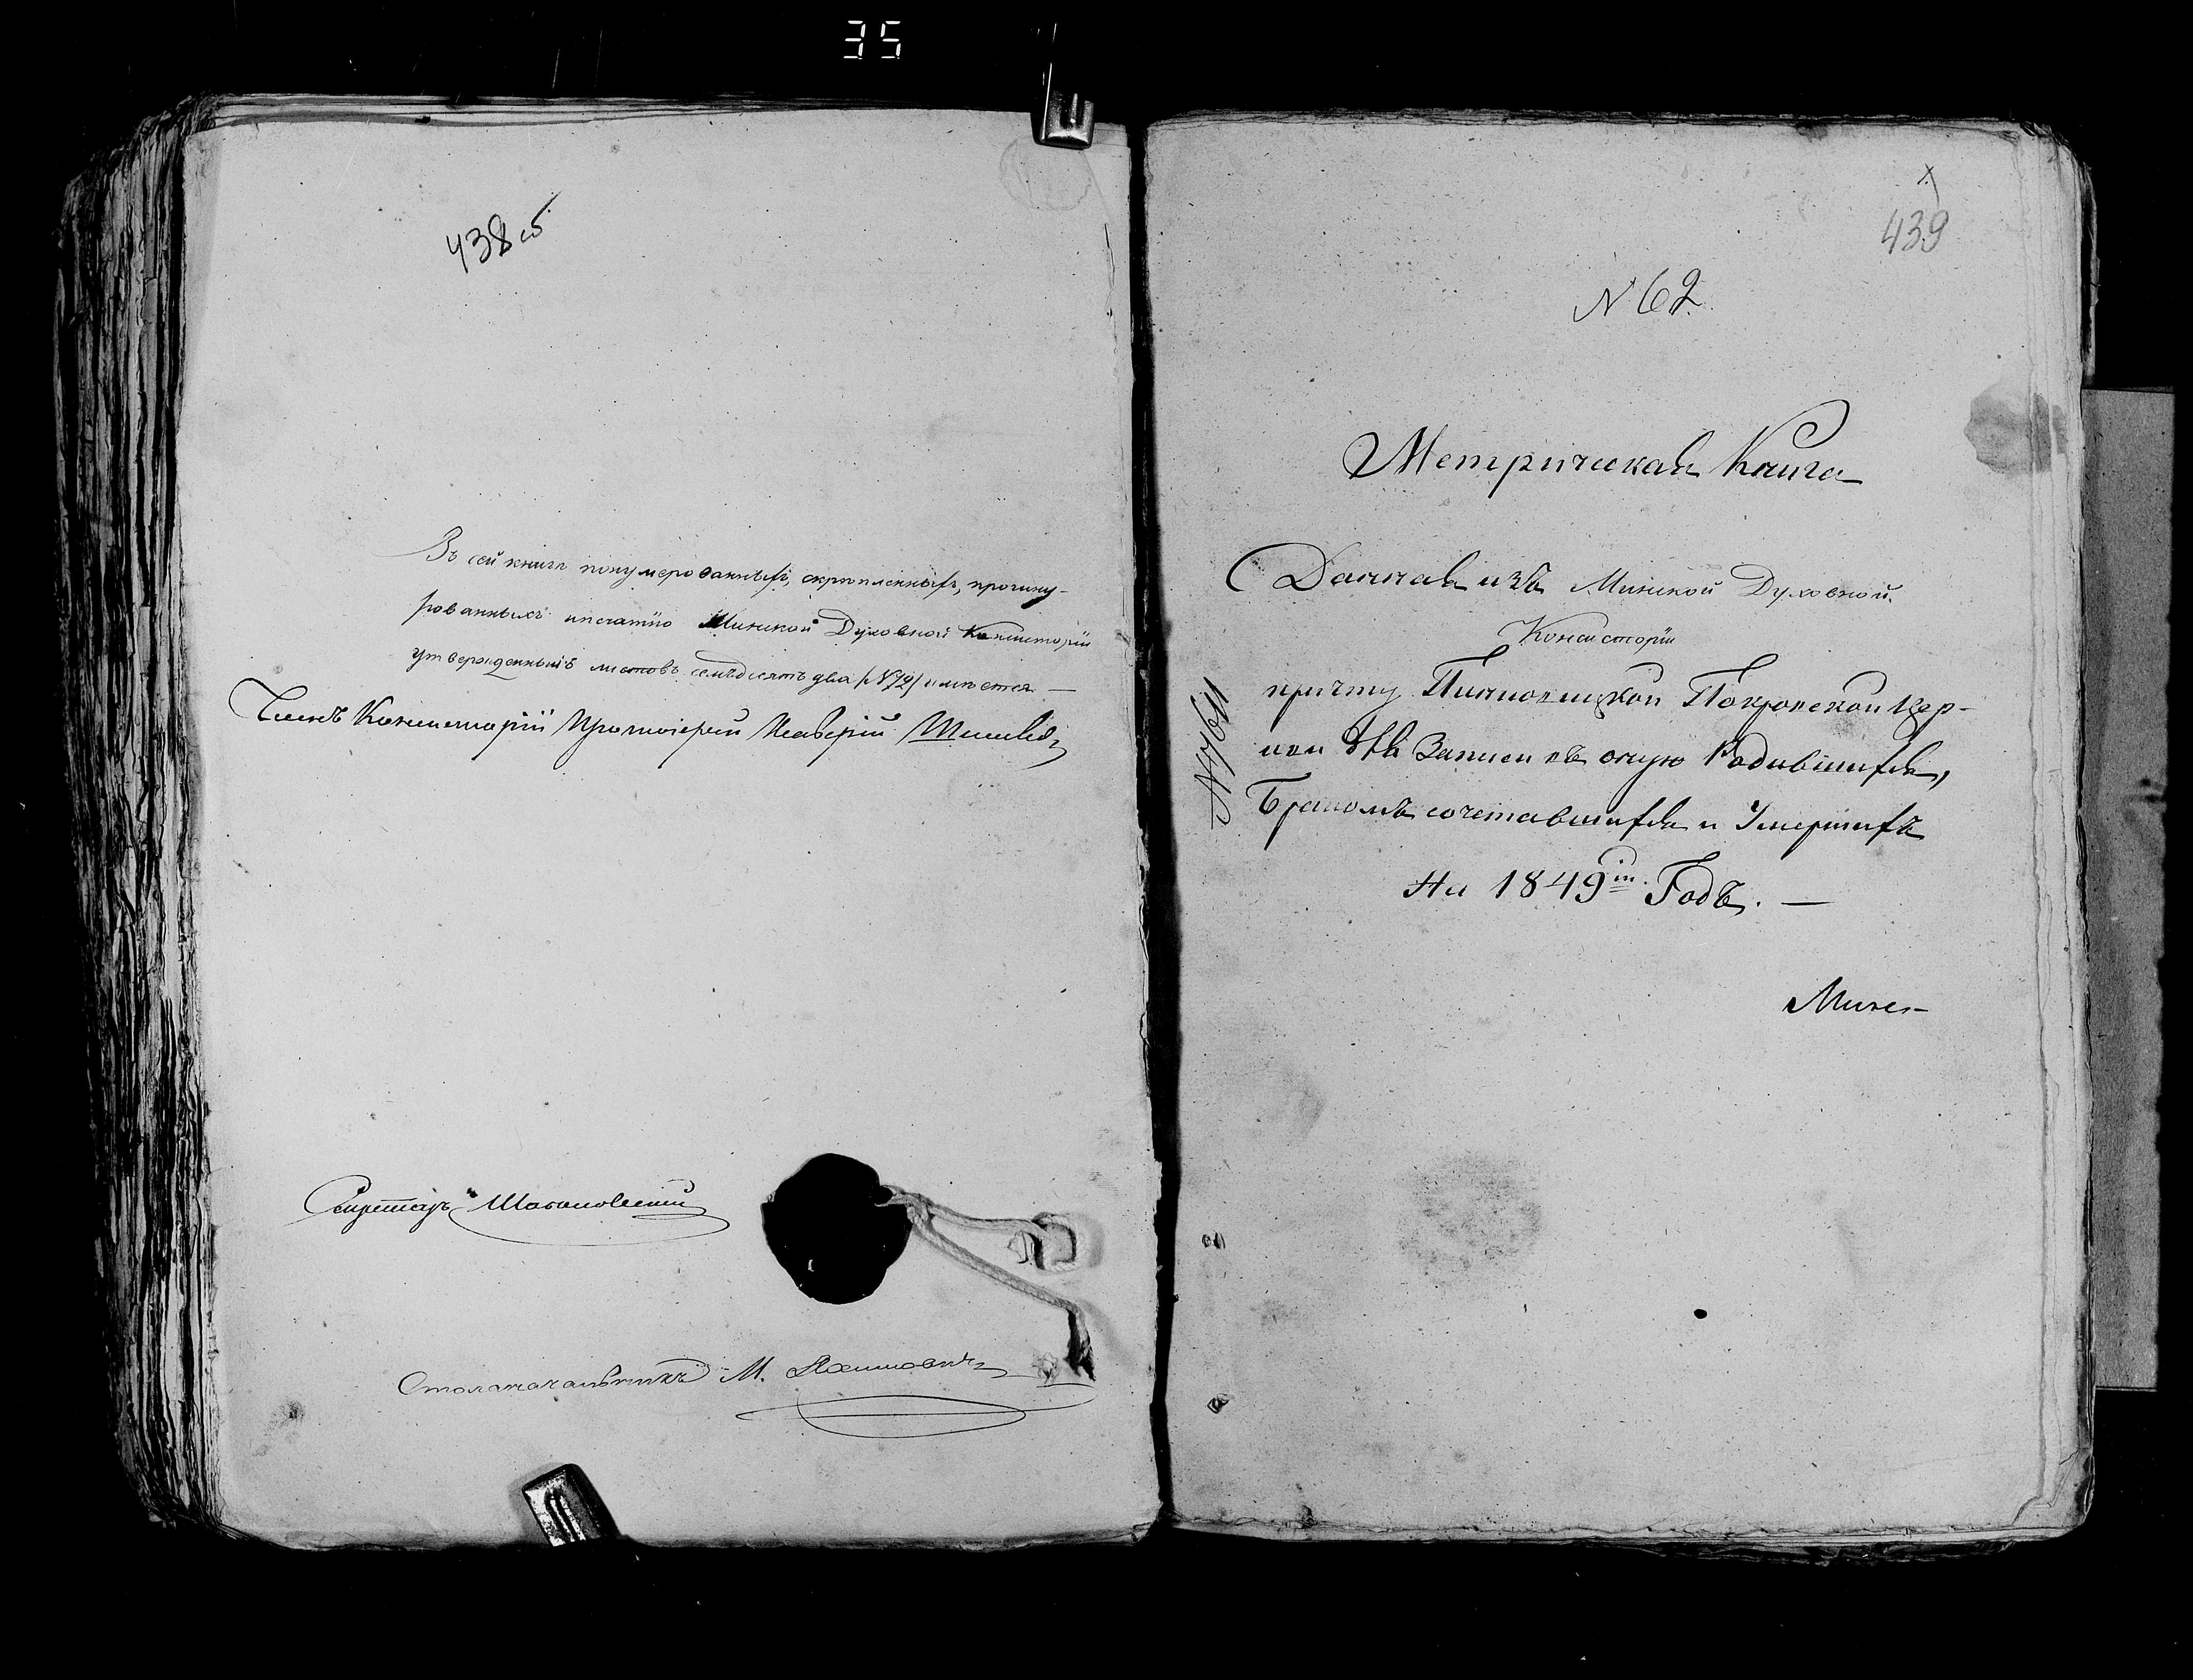 35
438 об
Въ сей книгѣ понумерованныхъ, скрѣпленныхъ, прошну-
рованныхъ и печатію Минской Духовной Консисторіи
утвержденныхъ листовъ семъдесятъ два /№72/ имѣется —
Членъ Консисторіи Протоіерей
Секретарь
Столоначальникъ М.
439
N 62.
Метрическая Книга
Данная изъ Минской Духовной
Консисторіи
причту Покровской Цер-
кви для Записи въ оную Родившихся,
Бракомъ сочетавшихся и Умершихъ
На 1849й Годъ. —